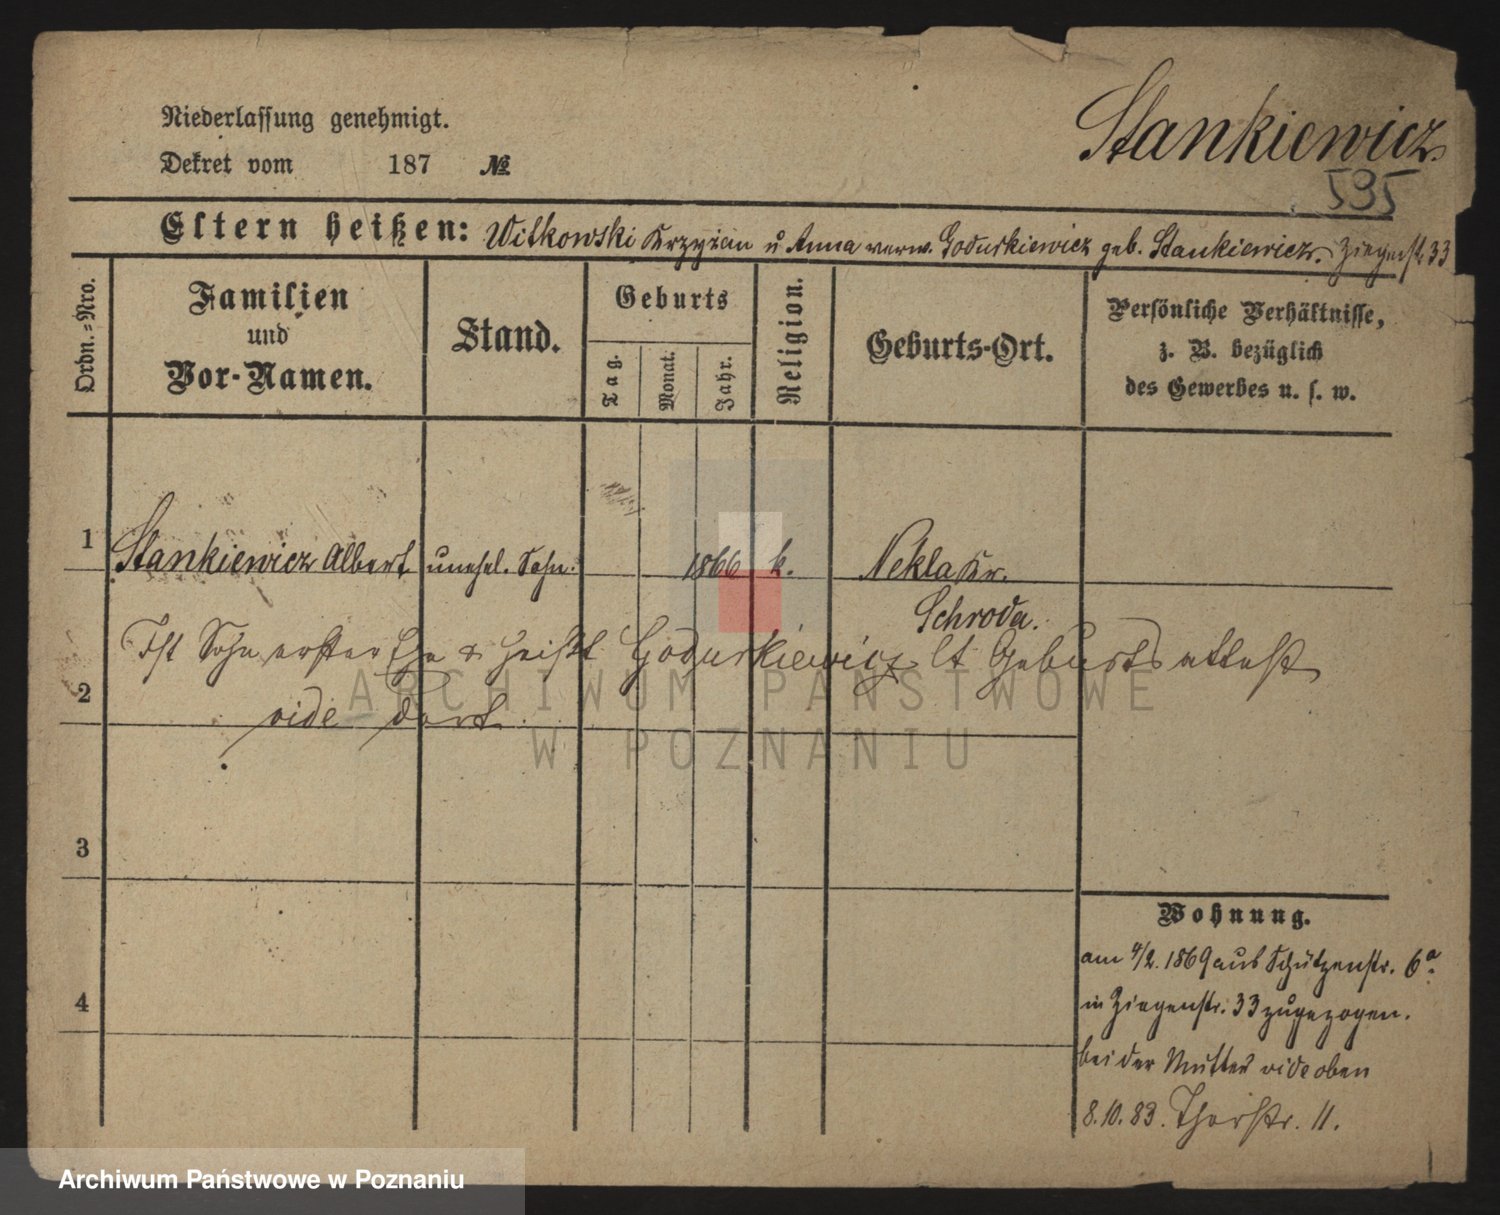 Niederlassung genehmigt.
Stankiewicz
Dekret vom 187 №
595
Eltern heißen: Witkowski Krzyżan u Anna verw. Godurkiewicz geb. Stankiewicz. Ziegenstr 33
Ordn.-Nro.
Familien
und
Vor-Namen.
Stand.
Geburts
Tag.
Monat.
Jahr.
Religion.
Geburts-Ort.
Persönliche Verhältnisse,
z. B. bezüglich
des Gewerbes u. s. w.
1 Stankiewicz Albert unehel. Sohn. 1866 k. Nekla Kr.
Schroda.
Ist Sohn erster Ehe & heißt Godurkiewicz lt Geburtsattest
2
vide dort
3
4
Wohnung.
am 4/2. 1869 aus Schützenstr. 6a.
in Ziegenstr. 33 zugezogen.
bei der Mutter vide oben
8.10.83. Thorstr. 11.
ARCHIWUM PAŃSTWOWE
W POZNANIU
Archiwum Państwowe w Poznaniu